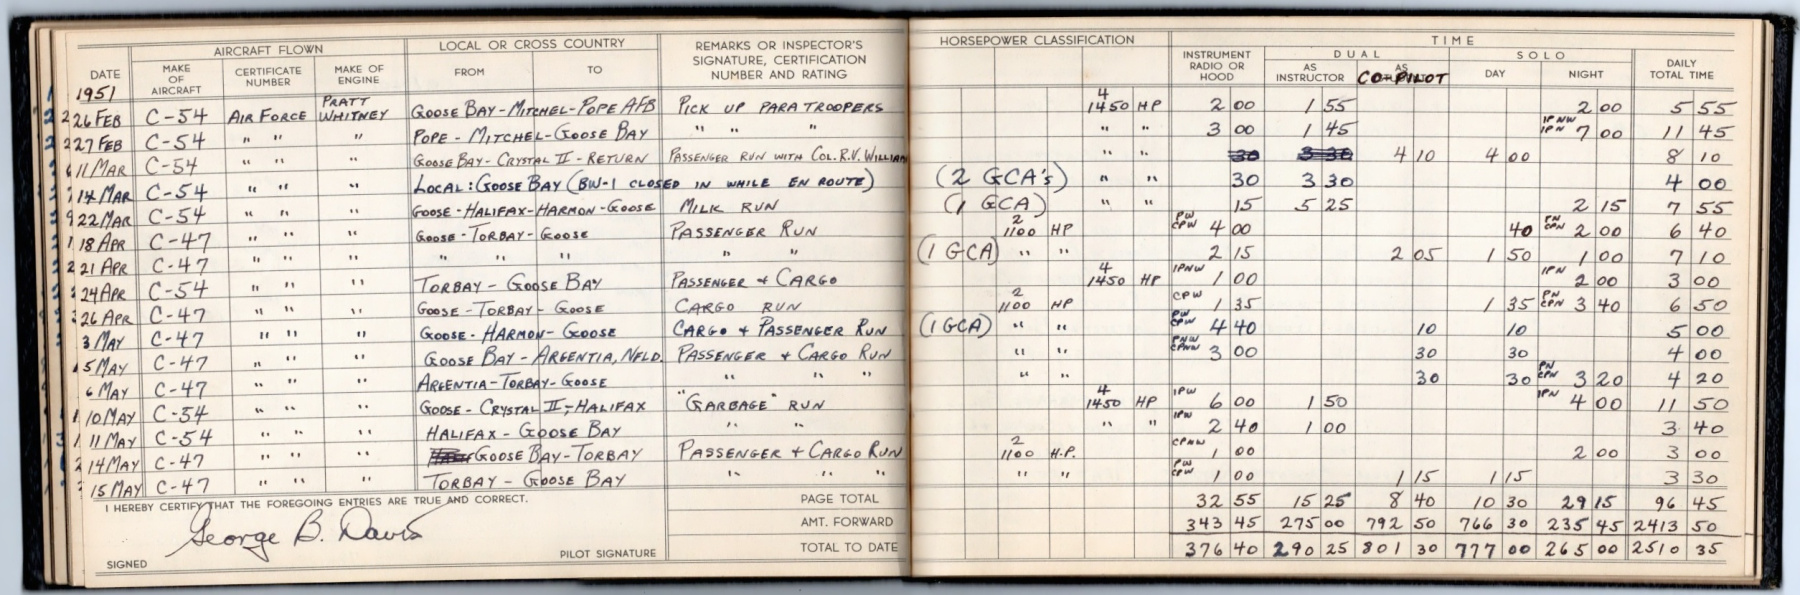 AIRCRAFT FLOWN LOCAL OR CROSS COUNTRY REMARKS OR INSPECTOR'S SIGNATURE, CERTIFICATION NUMBER AND RATING HORSEPOWER CLASSIFICATION TIME
DATE MAKE OF AIRCRAFT CERTIFICATE NUMBER MAKE OF ENGINE FROM TO INSTRUMENT RADIO OR HOOD DUAL AS INSTRUCTOR AS CO-PILOT SOLO DAY NIGHT DAILY TOTAL TIME
1951
26 FEB C-54 AIR FORCE PRATT WHITNEY GOOSE BAY-MITCHEL-POPE AFB PICK UP PARATROOPERS 4 1450 HP 2 00 1 55 2 00 5 55
27 FEB C-54 " " " POPE - MITCHEL-GOOSE BAY " " " " " 3 00 1 45 IPNW IPN 7 00 11 45
11 MAR C-54 " " " GOOSE BAY-CRYSTAL II-RETURN PASSENGER RUN WITH COL. R.V. WILLIAM " " 30 3 30 4 10 4 00 8 10
14 MAR C-54 " " " LOCAL: GOOSE BAY (BW-1 CLOSED IN WHILE EN ROUTE) (2 GCA's) " " 30 3 30 4 00
22 MAR C-54 " " " GOOSE-HALIFAX-HARMON-GOOSE MILK RUN (1 GCA) " " 15 5 25 2 15 7 55
18 APR C-47 " " " GOOSE-TORBAY-GOOSE PASSENGER RUN 2 1100 HP PW CPW 4 00 40 PN CPN 2 00 6 40
21 APR C-47 " " " " " " " " (1 GCA) " " 2 15 2 05 1 50 1 00 7 10
24 APR C-54 " " " TORBAY-GOOSE BAY PASSENGER & CARGO 4 1450 HP IPNW 1 00 IPN 2 00 3 00
26 APR C-47 " " " GOOSE-TORBAY-GOOSE CARGO RUN 2 1100 HP CPW 1 35 1 35 PN CPN 3 40 6 50
3 MAY C-47 " " " GOOSE-HARMON-GOOSE CARGO & PASSENGER RUN (1 GCA) " " PW CPW 4 40 10 10 5 00
5 MAY C-47 " " GOOSE BAY-ARGENTIA, NFLD. PASSENGER & CARGO RUN " " PNW CPNW 3 00 30 30 4 00
6 MAY C-47 " " " ARGENTIA-TORBAY-GOOSE " " " " " 30 30 PN CPN 3 20 4 20
10 MAY C-54 " " " GOOSE-CRYSTAL II-HALIFAX "GARBAGE" RUN 4 1450 HP IPW 6 00 1 50 IPN 4 00 11 50
11 MAY C-54 " " " HALIFAX-GOOSE BAY " " " " IPW 2 40 1 00 3 40
14 MAY C-47 " " " GOOSE BAY-TORBAY PASSENGER & CARGO RUN 2 1100 H.P. CPNW 1 00 2 00 3 00
15 MAY C-47 " " " TORBAY-GOOSE BAY " " " " " PW CPW 1 00 1 15 1 15 3 30
I HEREBY CERTIFY THAT THE FOREGOING ENTRIES ARE TRUE AND CORRECT. PAGE TOTAL 32 55 15 25 8 40 10 30 29 15 96 45
George B. Davis AMT. FORWARD 343 45 275 00 792 50 766 30 235 45 2413 50
SIGNED PILOT SIGNATURE TOTAL TO DATE 376 40 290 25 801 30 777 00 265 00 2510 35